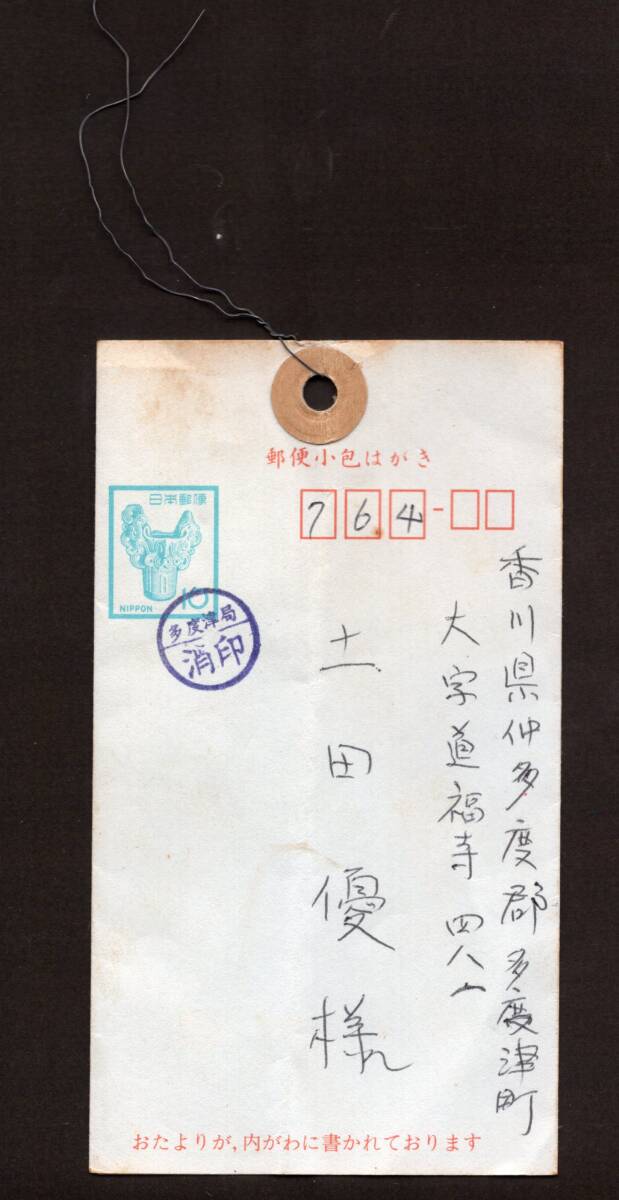 郵便小包はがき
日本郵便
NIPPON 10
多度津局
消印
764-
香川県仲多度郡多度津町
大字道福寺 四八一
土田優様
おたよりが,内がわに書かれております